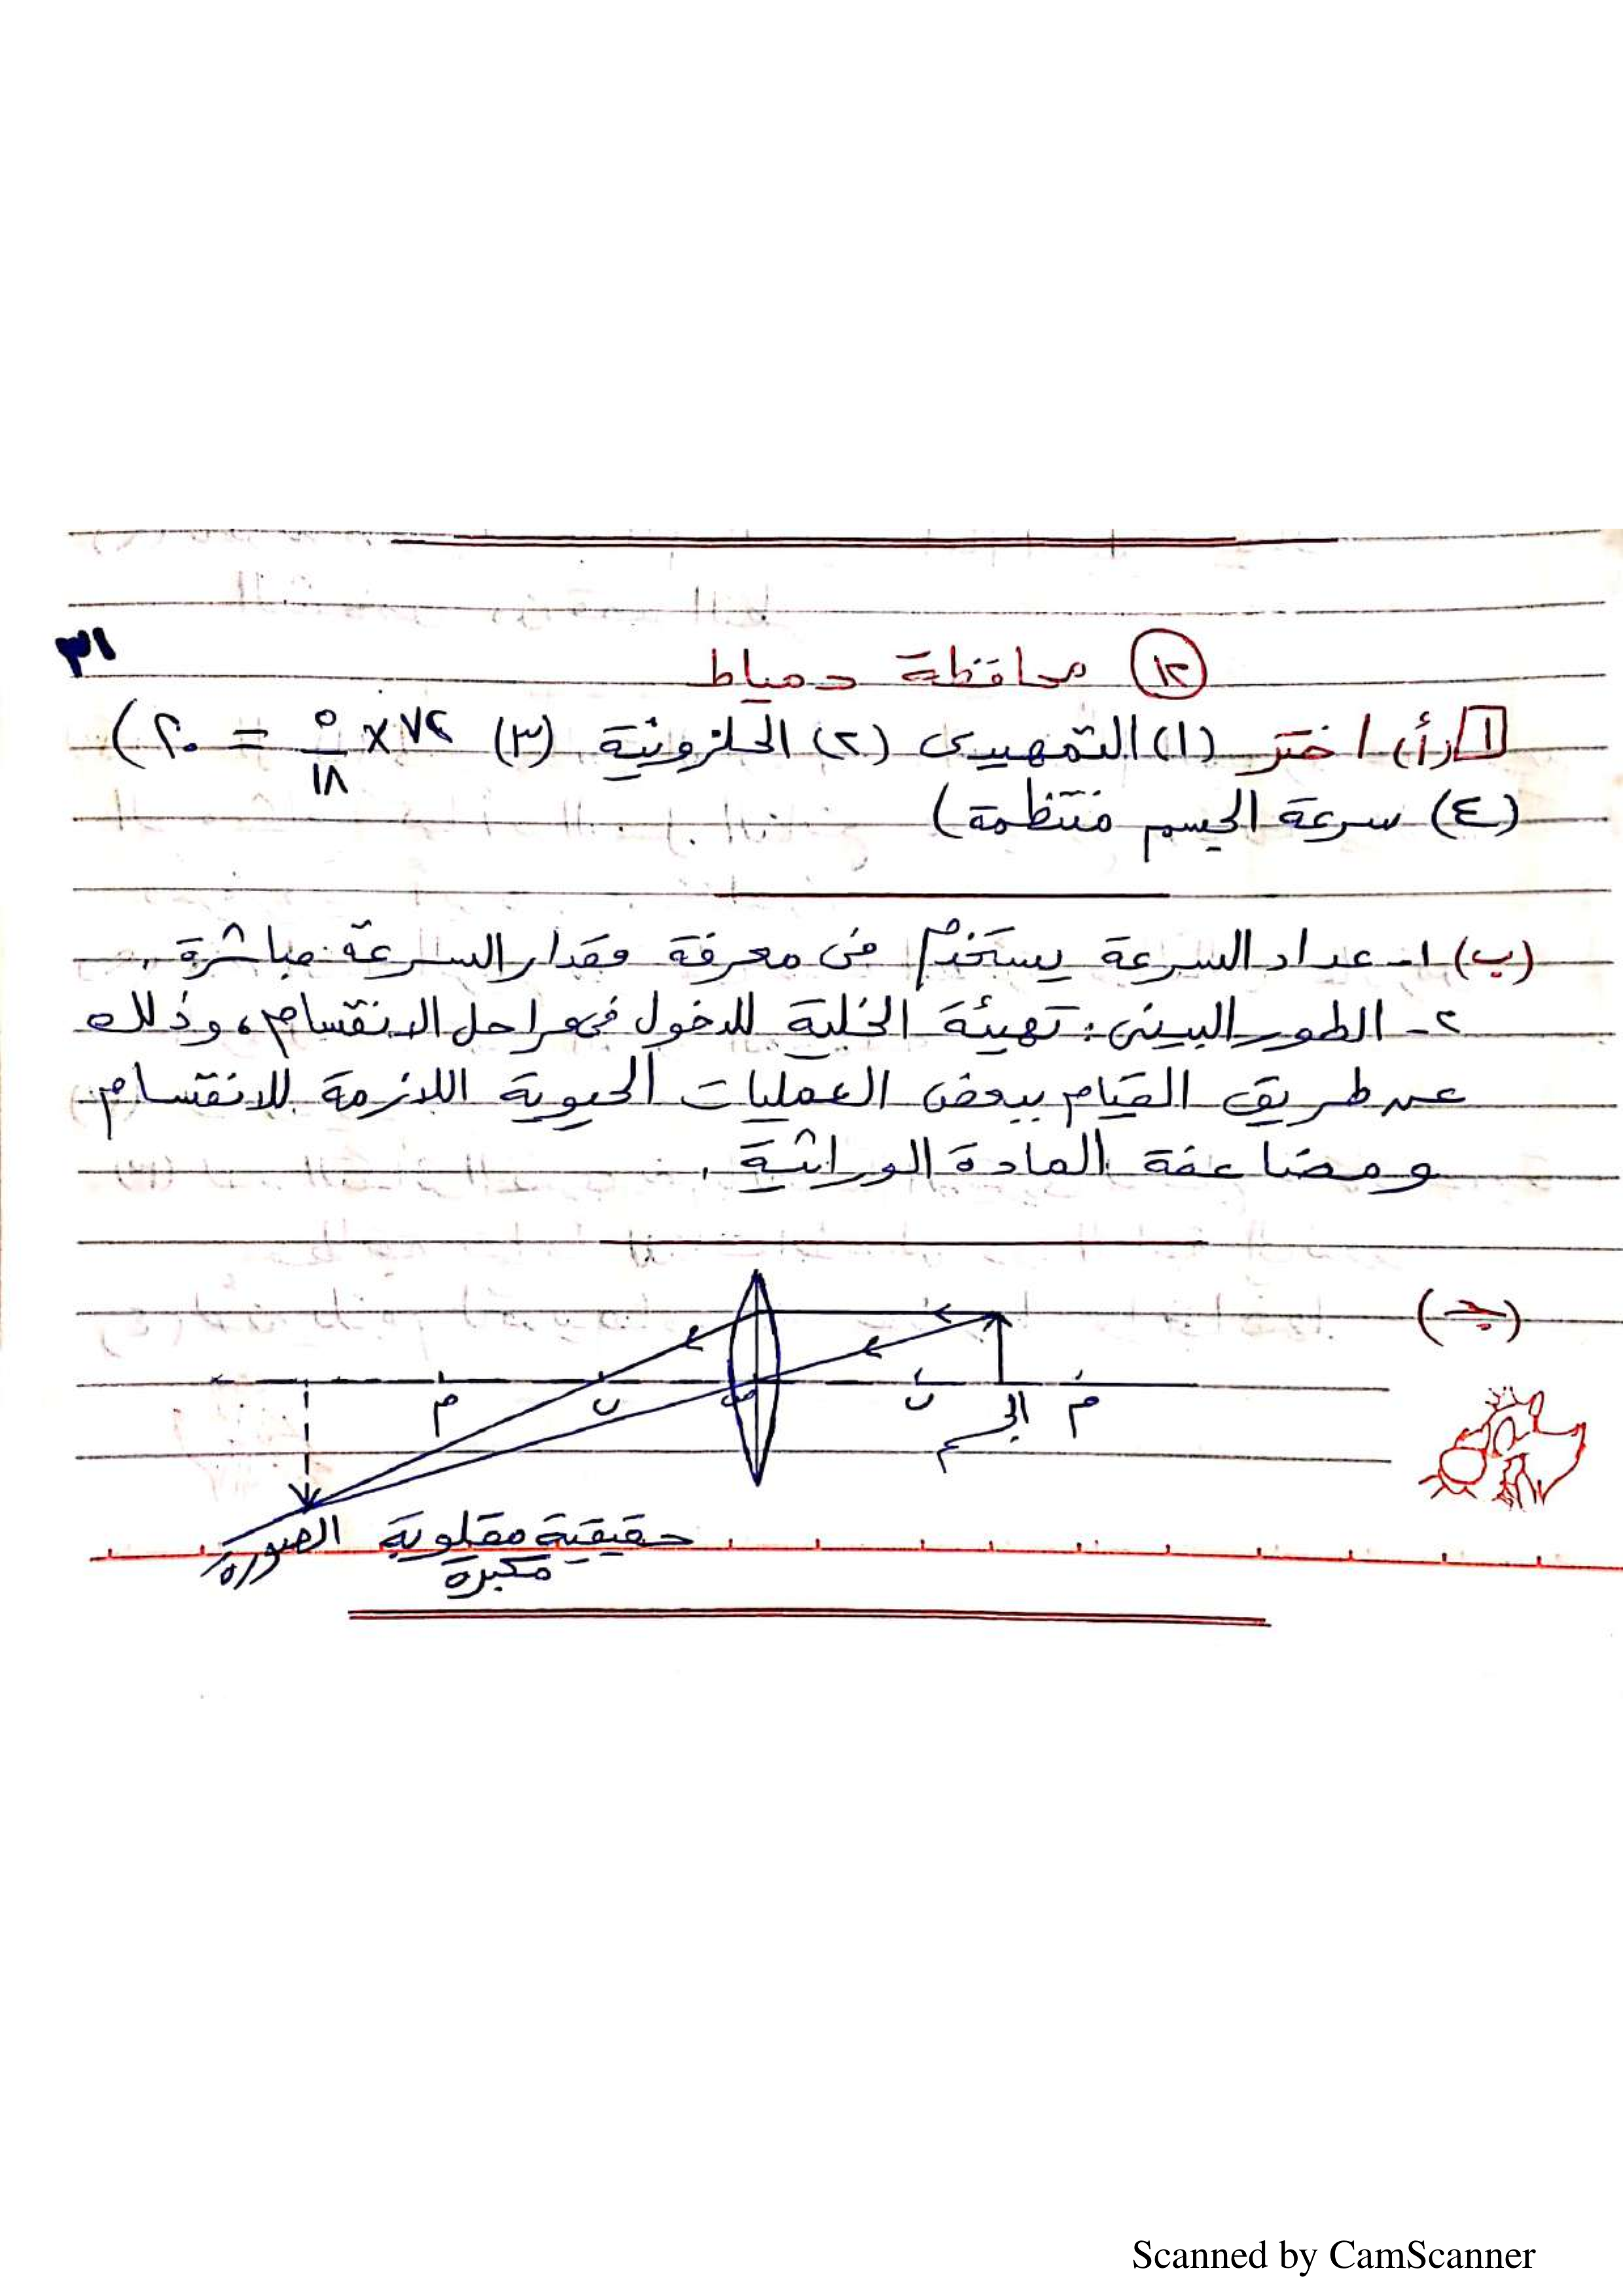 ٣١
(١٢) محافظة دمياط
١ (أ) اختر (١) التمهيدى (٢) الحلزونية (٣) ٧٢ × ٥/١٨ = ٢٠)
(٤) سرعة الجسم منتظمة)
(ب) ١- عداد السرعة يستخدم فى معرفة مقدار السرعة مباشرة.
٢- الطور البينى: تهيئة الخلية للدخول فى مراحل الانقسام، وذلك
عن طريق القيام ببعض العمليات الحيوية اللازمة للانقسام
ومضاعفة المادة الوراثية.
(جـ)
م الجسم ن ن م
الصورة حقيقية مقلوبة
مكبرة
Scanned by CamScanner